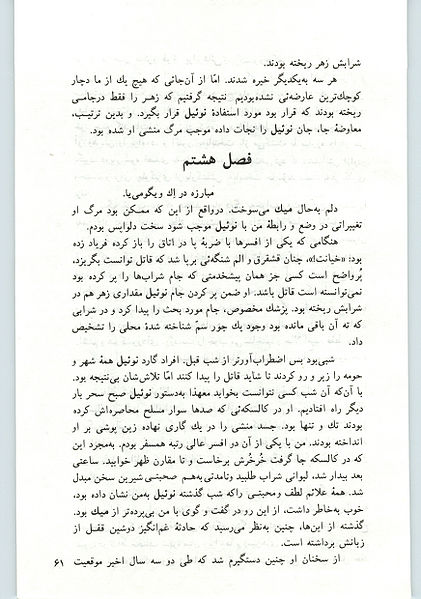 شرابش زهر ریخته بودند.
هر سه به‌یکدیگر خیره شدند. امّا از آن‌جائی که هیچ یك از ما دچار
کوچك‌ترین عارضه‌ئی نشده‌بودیم نتیجه گرفتیم که زهر را فقط درجامی
ریخته بودند که قرار بود مورد استفادهٔ نوئیل قرار بگیرد. و بدین ترتیب،
معاوضهٔ جا، جان نوئیل را نجات داده موجب مرگ منشی او شده بود.
فصل هشتم
مبارزه در اِك ویگومی‌یا.
دلم به‌حال میك می‌سوخت. درواقع از این که ممکن بود مرگ او
تغییراتی در وضع و رابطهٔ من با نوئیل موجب شود سخت دلواپس بودم.
هنگامی که یکی از افسرها با ضربهٔ پا در اتاق را باز کرده فریاد زده
بود: «خیانت!»، چنان قشقرق و الم شنگه‌ئی برپا شد که قاتل توانست بگریزد.
پُرواضح است کسی جز همان پیشخدمتی که جام شراب‌ها را پر کرده بود
نمی‌توانسته است قاتل باشد. او ضمن پر کردن جام نوئیل مقداری زهر هم در
شرابش ریخته بود. پزشك مخصوص، جام مورد بحث را پیدا کرد و در شرابی
که ته آن باقی مانده بود وجود یك جور سمّ شناخته شدهٔ محلی را تشخیص
داد.
شبی‌بود بس اضطراب‌آورتر از شب قبل. افراد گارد نوئیل همهٔ شهر و
حومه را زیر و رو کردند تا شاید قاتل را پیدا کنند امّا تلاش‌شان بی‌نتیجه بود.
با آن‌که آن شب کسی نتوانست بخوابد معهذا به‌دستور نوئیل صبح سحر بار
دیگر راه افتادیم. او در کالسکه‌ئی که صدها سوار مسلح محاصره‌اش کرده
بودند تك و تنها بود. جسد منشی را در یك گاری نهاده زین پوشی بر او
انداخته بودند. من با یکی از آن افسر عالی رتبه همسفر بودم. به‌مجرد این
که در کالسکه جا گرفت خُرخُرش برخاست و تا مقارن ظهر خوابید. ساعتی
بعد بیدار شد، لیوانی شراب طلبید ونامدتی به‌هم صحبتی شیرین سخن مبدل
شد. همهٔ علائم لطف ومحبتی راکه شب گذشته نوئیل به‌من نشان داده بود،
خوب به‌خاطر داشت، از این رو در گفت و گوی با من بی‌پرده‌تر از میك بود.
گذشته از این‌ها، چنین به‌نظر می‌رسید که حادثهٔ غم‌انگیز دوشین قفل از
زبانش برداشته است.
از سخنان او چنین دستگیرم شد که طی دو سه سال اخیر موقعیت ۶۱